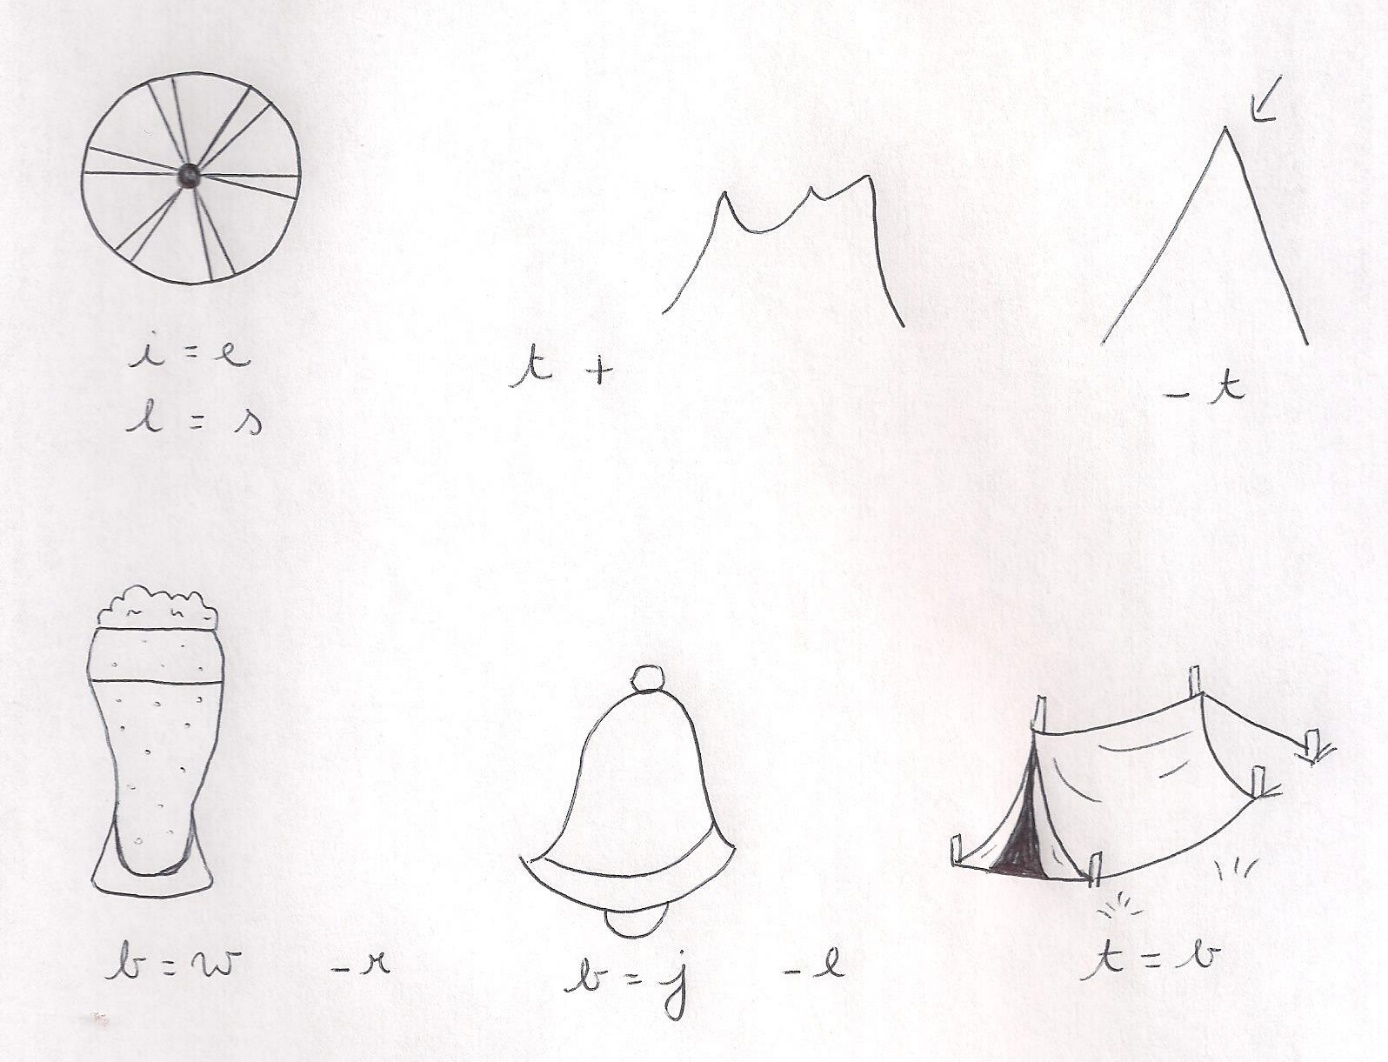 i = e
l = s
t +
- t
b = w - r
b = j - l
t = b